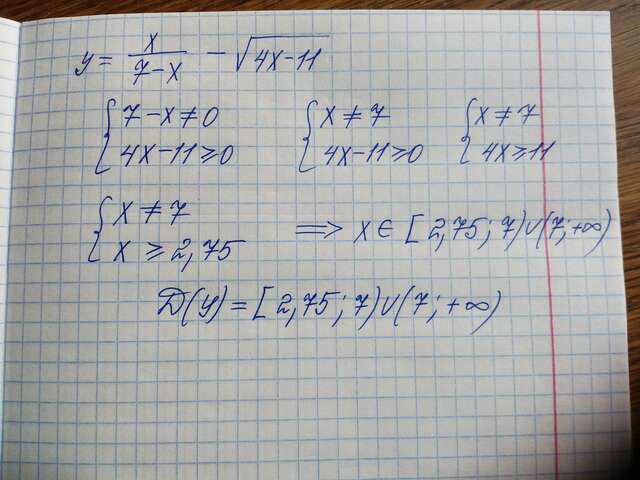 y = x/(7-x) - √(4x-11)
{7-x≠0 {x≠7 {x≠7
{4x-11≥0 {4x-11≥0 {4x≥11
{x≠7
{x≥2,75 ⟹ x∈[2,75; 7)∪(7; +∞)
D(y)=[2,75; 7)∪(7; +∞)